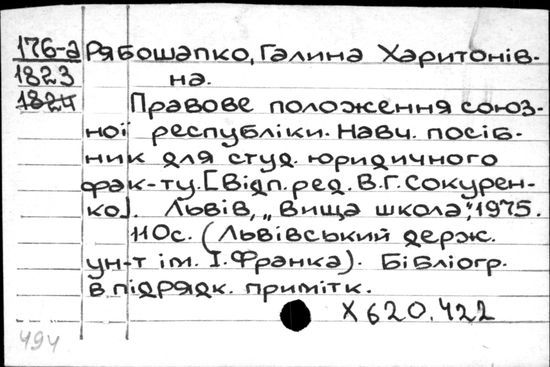 176-а Рябошапко, Галина Харитонів-
1823 на.
1824 Правове положення союз-
ної республіки. Навч. посіб-
ник для студ. юридичного
фак-ту. [Відп. ред. В.Г. Сокурен-
ко]. Львів, „Вища школа", 1975.
110с. (Львівський держ.
ун-т ім. І. Франка). Бібліогр.
в підрядк. примітк.
Х620.422
494